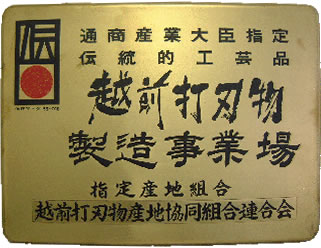 伝
通商産業大臣指定
伝統的工芸品
越前打刃物
製造事業場
指定産地組合
越前打刃物産地協同組合連合会